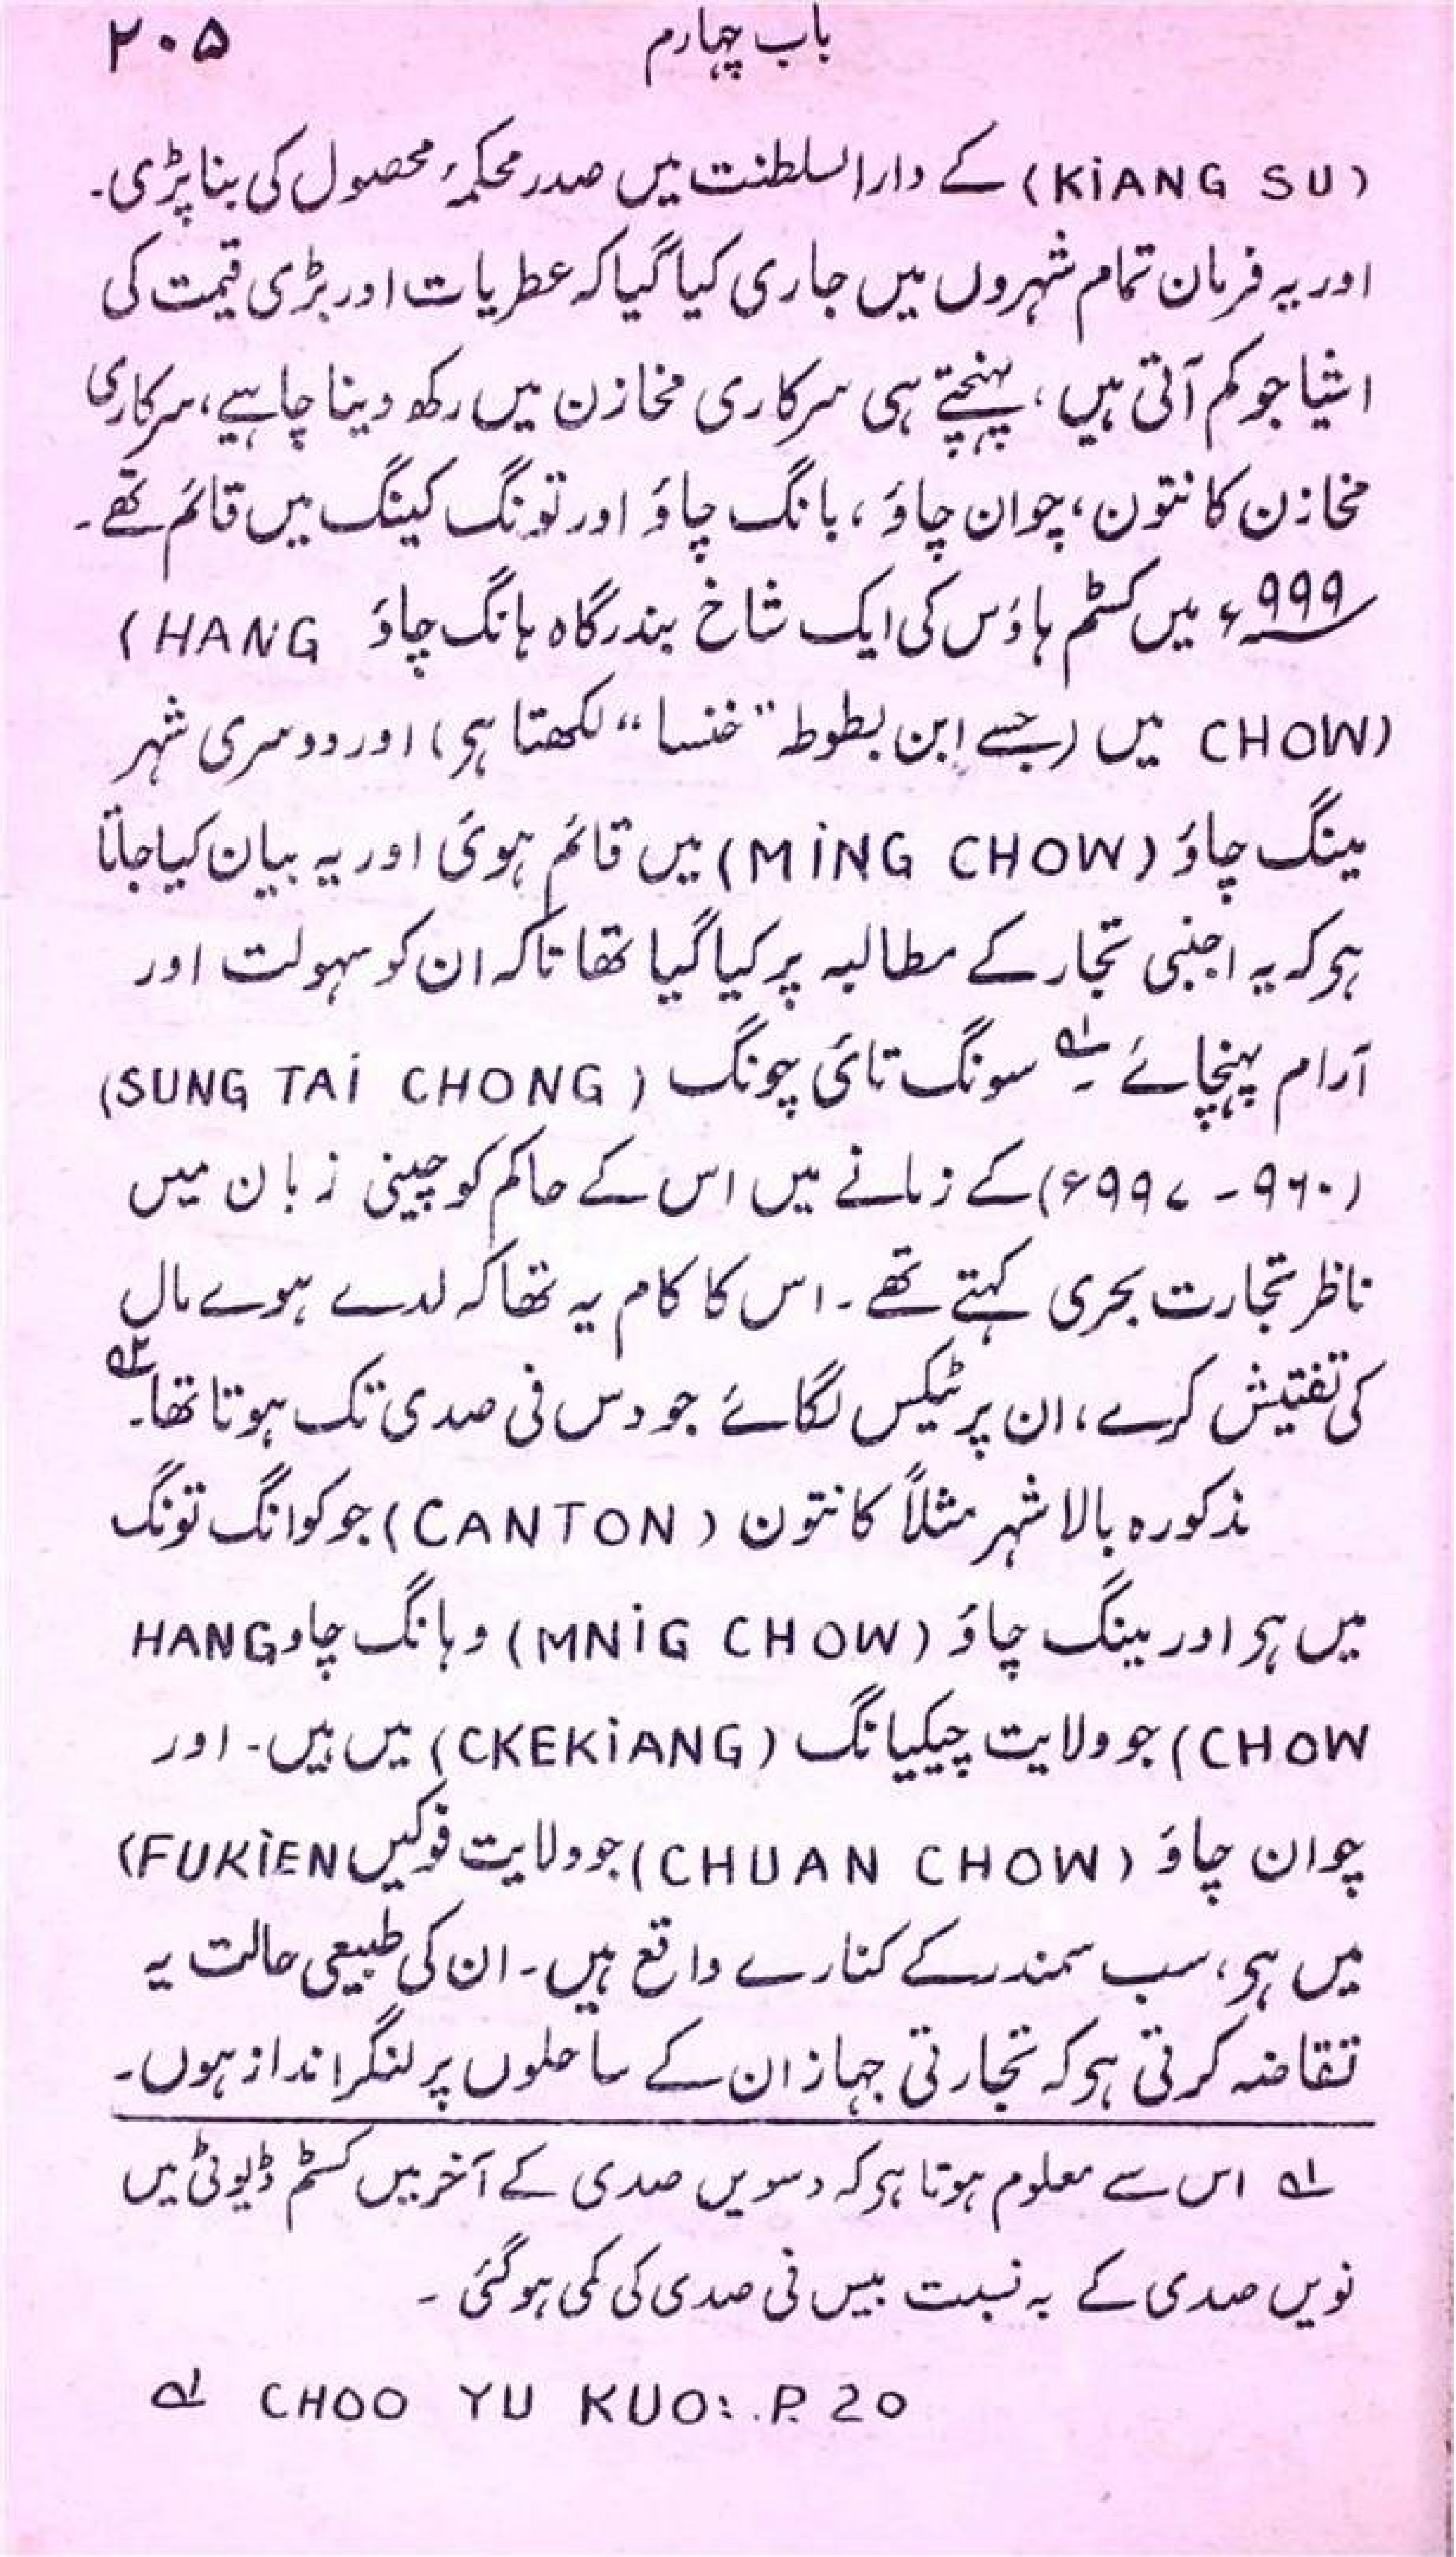 باب چہارم ۲۰۵
(KiANG SU) کے دارالسلطنت میں صدر محکمۂ محصول کی بنا پڑی۔
اور یہ فرمان تمام شہروں میں جاری کیا گیا کہ عطریات اور بڑی قیمت کی
اشیا جو کم آتی ہیں، پہنچتے ہی سرکاری مخازن میں رکھ دینا چاہیے، سرکاری
مخازن کانتون، چوان چاؤ، بانگ چاؤ اور تونگ کینگ میں قائم تھے۔
۹۹۹ء میں کسٹم ہاؤس کی ایک شاخ بندرگاہ ہانگ چاؤ (HANG
CHOW) میں (جسے ابن بطوطہ "خنسا" لکھتا ہی) اور دوسری شہر
مینگ چاؤ (MiNG CHOW) میں قائم ہوئی اور یہ بیان کیا جاتا
ہی کہ یہ اجنبی تجار کے مطالبہ پر کیا گیا تھا تاکہ ان کو سہولت اور
آرام پہنچائے۔ؔ۱ سونگ تائی چونگ (SUNG TAi CHONG)
(۹۶۰ - ۹۹۷ء) کے زمانے میں اس کے حاکم کو چینی زبان میں
ناظر تجارت بحری کہتے تھے۔ اس کا کام یہ تھا کہ لدے ہوے مال
کی تفتیش کرے، ان پر ٹیکس لگائے جو دس فی صدی تک ہوتا تھا۔ؔ۲
مذکورہ بالا شہر مثلاً کانتون (CANTON) جو کوانگ تونگ
میں ہی اور مینگ چاؤ (MNiG CHOW) و ہانگ چاو HANG
CHOW) جو ولایت چیکیانگ (CKEKiANG) میں ہیں۔ اور
چوان چاؤ (CHUAN CHOW) جو ولایت فوکیں FUKiEN)
میں ہی، سب سمندر کے کنارے واقع ہیں۔ ان کی طبیعی حالت یہ
تقاضہ کرتی ہی کہ تجارتی جہاز ان کے ساحلوں پر لنگر انداز ہوں۔
ؔ۱ اس سے معلوم ہوتا ہی کہ دسویں صدی کے آخر میں کسٹم ڈیوٹی میں
نویں صدی کے بہ نسبت بیس فی صدی کی کمی ہوگئی۔
ؔ۱ CHOO YU KUO: .P. 20